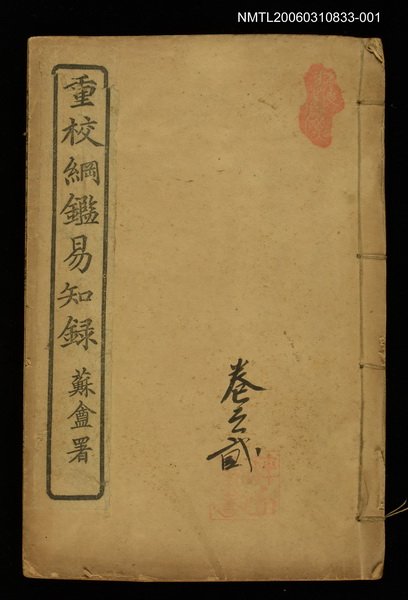 NMTL20060310833-001
重校綱鑑易知録 蘇盦署
卷之貳